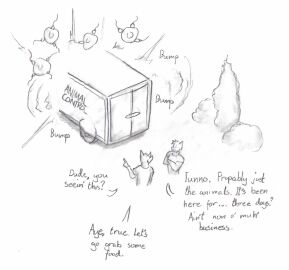 Bump
ANIMAL
CONTROL
Bump
Bump
Dude, you
seein' this?
Iunno. Propably just
the animals. It's been
here for.... three days?
Ain't non o' muh
business.
Aye, true. Let's
go grab some
food.